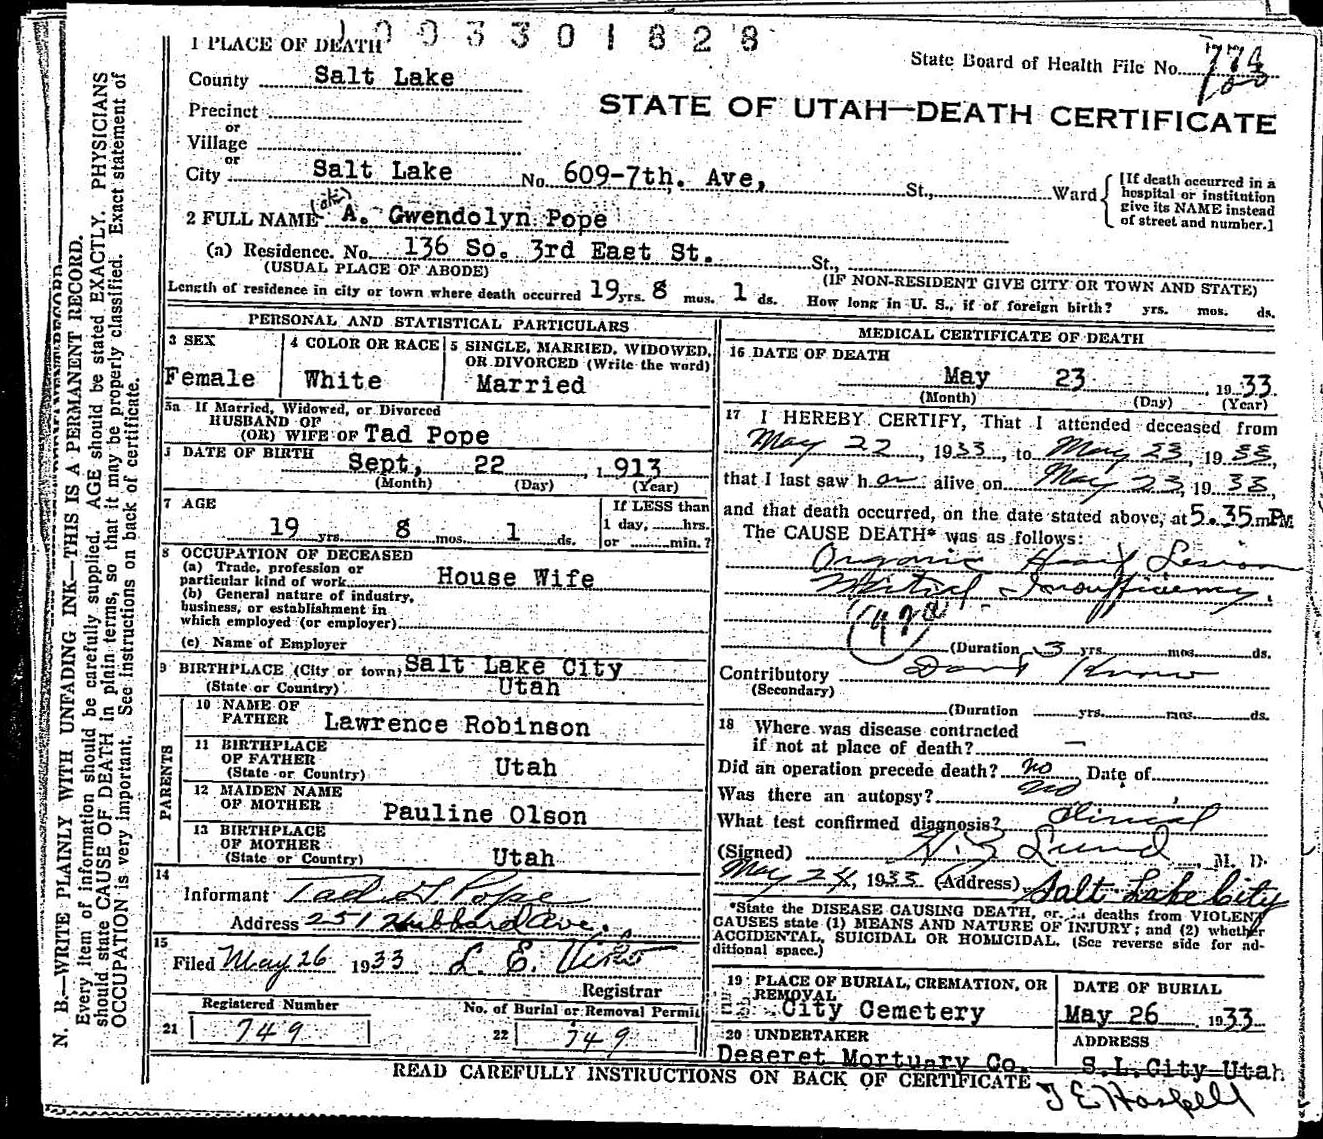 1003301828
1 PLACE OF DEATH
State Board of Health File No.
County Salt Lake
STATE OF UTAH—DEATH CERTIFICATE
Precinct
or
Village
or
City Salt Lake No. 609-7th. Ave, St., Ward
[If death occurred in a hospital or institution give its NAME instead of street and number.]
2 FULL NAME A. Gwendolyn Pope
(a) Residence. No. 136 So. 3rd East St. St.,
(USUAL PLACE OF ABODE) (IF NON-RESIDENT GIVE CITY OR TOWN AND STATE)
Length of residence in city or town where death occurred 19 yrs. 8 mos. 1 ds. How long in U. S., if of foreign birth? yrs. mos. ds.
PERSONAL AND STATISTICAL PARTICULARS
3 SEX
Female
4 COLOR OR RACE
White
5 SINGLE, MARRIED, WIDOWED, OR DIVORCED (Write the word)
Married
5a If Married, Widowed, or Divorced
HUSBAND OF
(OR) WIFE OF Tad Pope
DATE OF BIRTH
Sept, 22 1913
(Month) (Day) (Year)
7 AGE
19 yrs. 8 mos. 1 ds.
If LESS than
1 day, hrs.
or min.?
8 OCCUPATION OF DECEASED
(a) Trade, profession or
particular kind of work House Wife
(b) General nature of industry,
business, or establishment in
which employed (or employer)
(c) Name of Employer
9 BIRTHPLACE (City or town) Salt Lake City
(State or Country) Utah
PARENTS
10 NAME OF
FATHER Lawrence Robinson
11 BIRTHPLACE
OF FATHER
(State or Country) Utah
12 MAIDEN NAME
OF MOTHER Pauline Olson
13 BIRTHPLACE
OF MOTHER
(State or Country) Utah
14
Informant Tad G Pope
Address 251 Hubbard Ave.
15
Filed May 26 1933 L. E.
Registrar
Registered Number
21 749
No. of Burial or Removal Permit
22 749
MEDICAL CERTIFICATE OF DEATH
16 DATE OF DEATH
May 23 1933
(Month) (Day) (Year)
17 I HEREBY CERTIFY, That I attended deceased from
May 22, 1933, to May 23, 1933,
that I last saw her alive on May 23, 1933,
and that death occurred, on the date stated above, at 5.35 m PM
The CAUSE DEATH* was as follows:
Organic Heart Lesion
Mitral Insufficiency.
(Duration 3 yrs. mos. ds.
Contributory Dont Know
(Secondary)
(Duration yrs. mos. ds.
18 Where was disease contracted
if not at place of death? —
Did an operation precede death? no Date of
Was there an autopsy? no
What test confirmed diagnosis? Clinical
(Signed) Lund, M. D.
May 24, 1933 (Address) Salt Lake City
*State the DISEASE CAUSING DEATH, or in deaths from VIOLENT
CAUSES state (1) MEANS AND NATURE OF INJURY; and (2) whether
ACCIDENTAL, SUICIDAL OR HOMICIDAL. (See reverse side for ad-
ditional space.)
19 PLACE OF BURIAL, CREMATION, OR
REMOVAL
City Cemetery
DATE OF BURIAL
May 26 1933
20 UNDERTAKER
Deseret Mortuary Co.
ADDRESS
S.L.City Utah
READ CAREFULLY INSTRUCTIONS ON BACK OF CERTIFICATE
J E Haskell
N. B.—WRITE PLAINLY WITH UNFADING INK—THIS IS A PERMANENT RECORD.
Every item of information should be carefully supplied. AGE should be stated EXACTLY. PHYSICIANS
should state CAUSE OF DEATH in plain terms, so that it may be properly classified. Exact statement of
OCCUPATION is very important. See instructions on back of certificate.